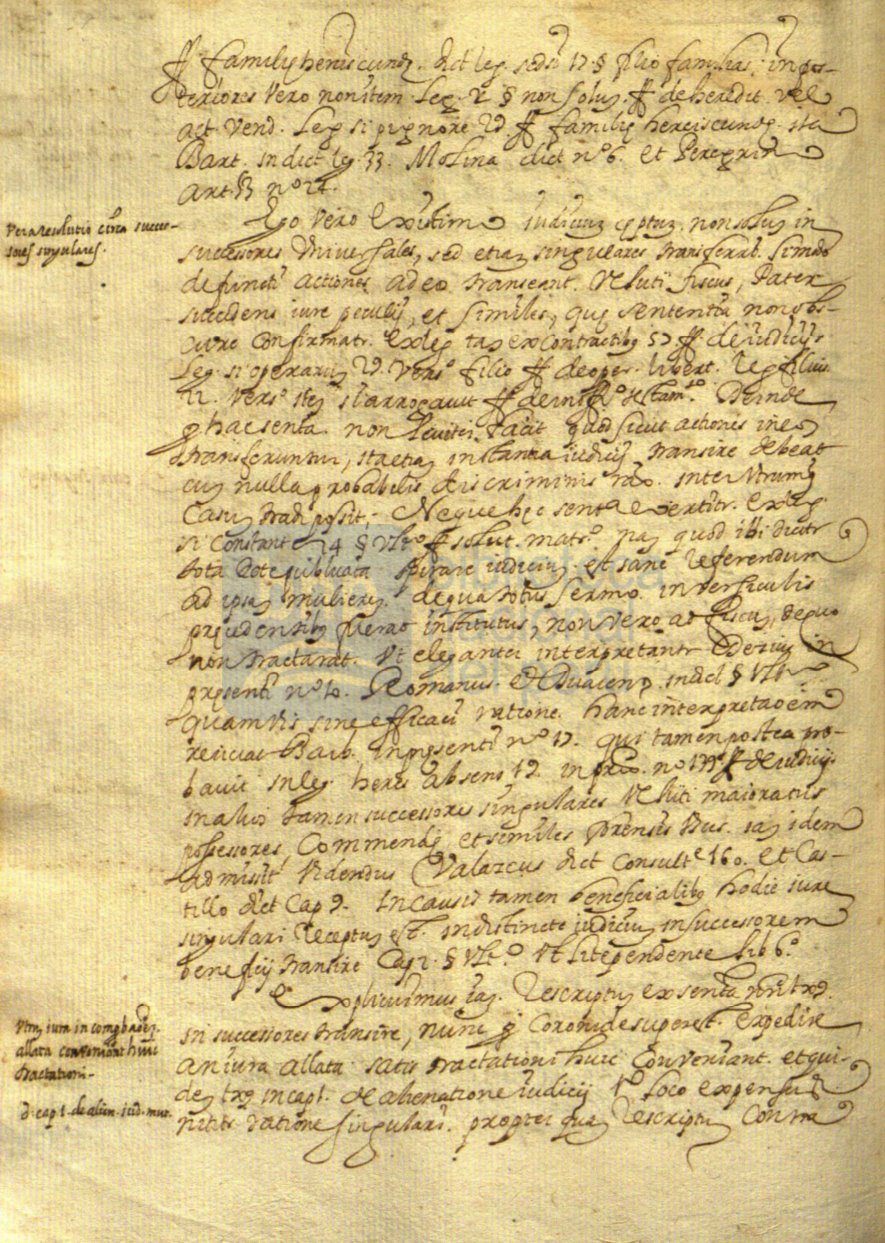 ff familię herciscundę. dict leg. sed si 17. § filio familias: in pos-
teriores vero non item. Leg. 2 § non solum. ff de heredit. vel
act. vend. Leg si pignore 29 ff familię herciscundę. ita
Bart. in dict leg. 33. Molina dict nº 6. et Peregrin
Art. 53 nº 24.
Vera resolutio circa succes-
sores singulares.
Ego vero existimo iudicium cęptum. non solum in
successores universales, sed etiam singulares transferat. si modo
defuncti actiones ad eo transeant. veluti fiscus, Pater
succedens iure peculij, et similes, quę sententia non obs-
cure confirmatr. ex leg tam ex contractibus 57 ff de iudicijs.
Leg. si operarum 29. vers. filio ff de oper. libert. Leg filius
22. vers. item si arrogavit ff de inffo. testamto. Deinde
p hac senta. non leviter facit quod sicut actiones in eos
transferuntur, ita etiam instantia iudicij transire debeat
cum nulla probabilis discriminis rao. inter utrumq
Casum tradi possit. Neque hęc senta evertitr. ex leg
si Constante 24 § ulto ff solut. matro. nam quod ibi dicitr
tota dote publicata spirare iudicium. est sane referendum
ad ipsam mulierem. de qua totus sermo. in versiculis
pręcedentibus fuerat institutus, non vero ad fiscum, de quo
non tractarat. ut eleganter interpretantr
presenti nº 10. Romanus. et Duaceno. in dict § ulto
quamvis sine efficaci ratione. hanc interpretaoem
reiiciat Barb. in presenti nº 17. qui tamen postea pro-
bavit in leg. heres absens 19. in prio. nº 139 ff de iudicijs
In alios tamen successores singulares veluti maioratus
possessores, Commendę, et similes forensis usus. iam idem
admissit. videndus Valascus dict Consult. 160. et Cas-
tillo dict Cap 9. In causis tamen beneficialibus hodie iure
singulari receptum est. indistincte iudicium in successorem
beneficij transire Cap 2. § ulto. ut lite pendente lib 6º
Explicuimus iam. Rescriptum ex senta nri txq.
Utrum iura in comprobaonem
allata conveniant huic
tractationi.
in successores transire, nunc p Coronide superest. expedire
an iura allata satis tractationi huic conveniant. et qui-
dem txq in cap 1. de alienatione iudicij 1º loco expensus
d. cap 1. de alien. iud. mut.
nititr ratione singulari. propter quam rescriptum contra